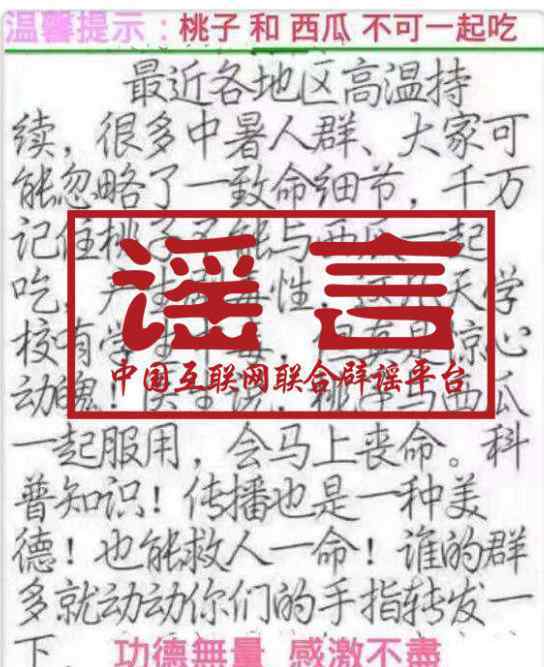 温馨提示：桃子 和 西瓜 不可一起吃
最近各地区高温持
续，很多中暑人群、大家可
能忽略了一致命细节，千万
记住桃子不能与西瓜一起
吃，产生 毒性，这几天学
校有学生中毒，但真是惊心
动魄！医生说：桃子与西瓜
一起服用，会马上丧命。科
普知识！传播也是一种美
德！也能救人一命！谁的群
多就动动你们的手指转发一
下
功德無量 感激不盡
谣言
中国互联网联合辟谣平台